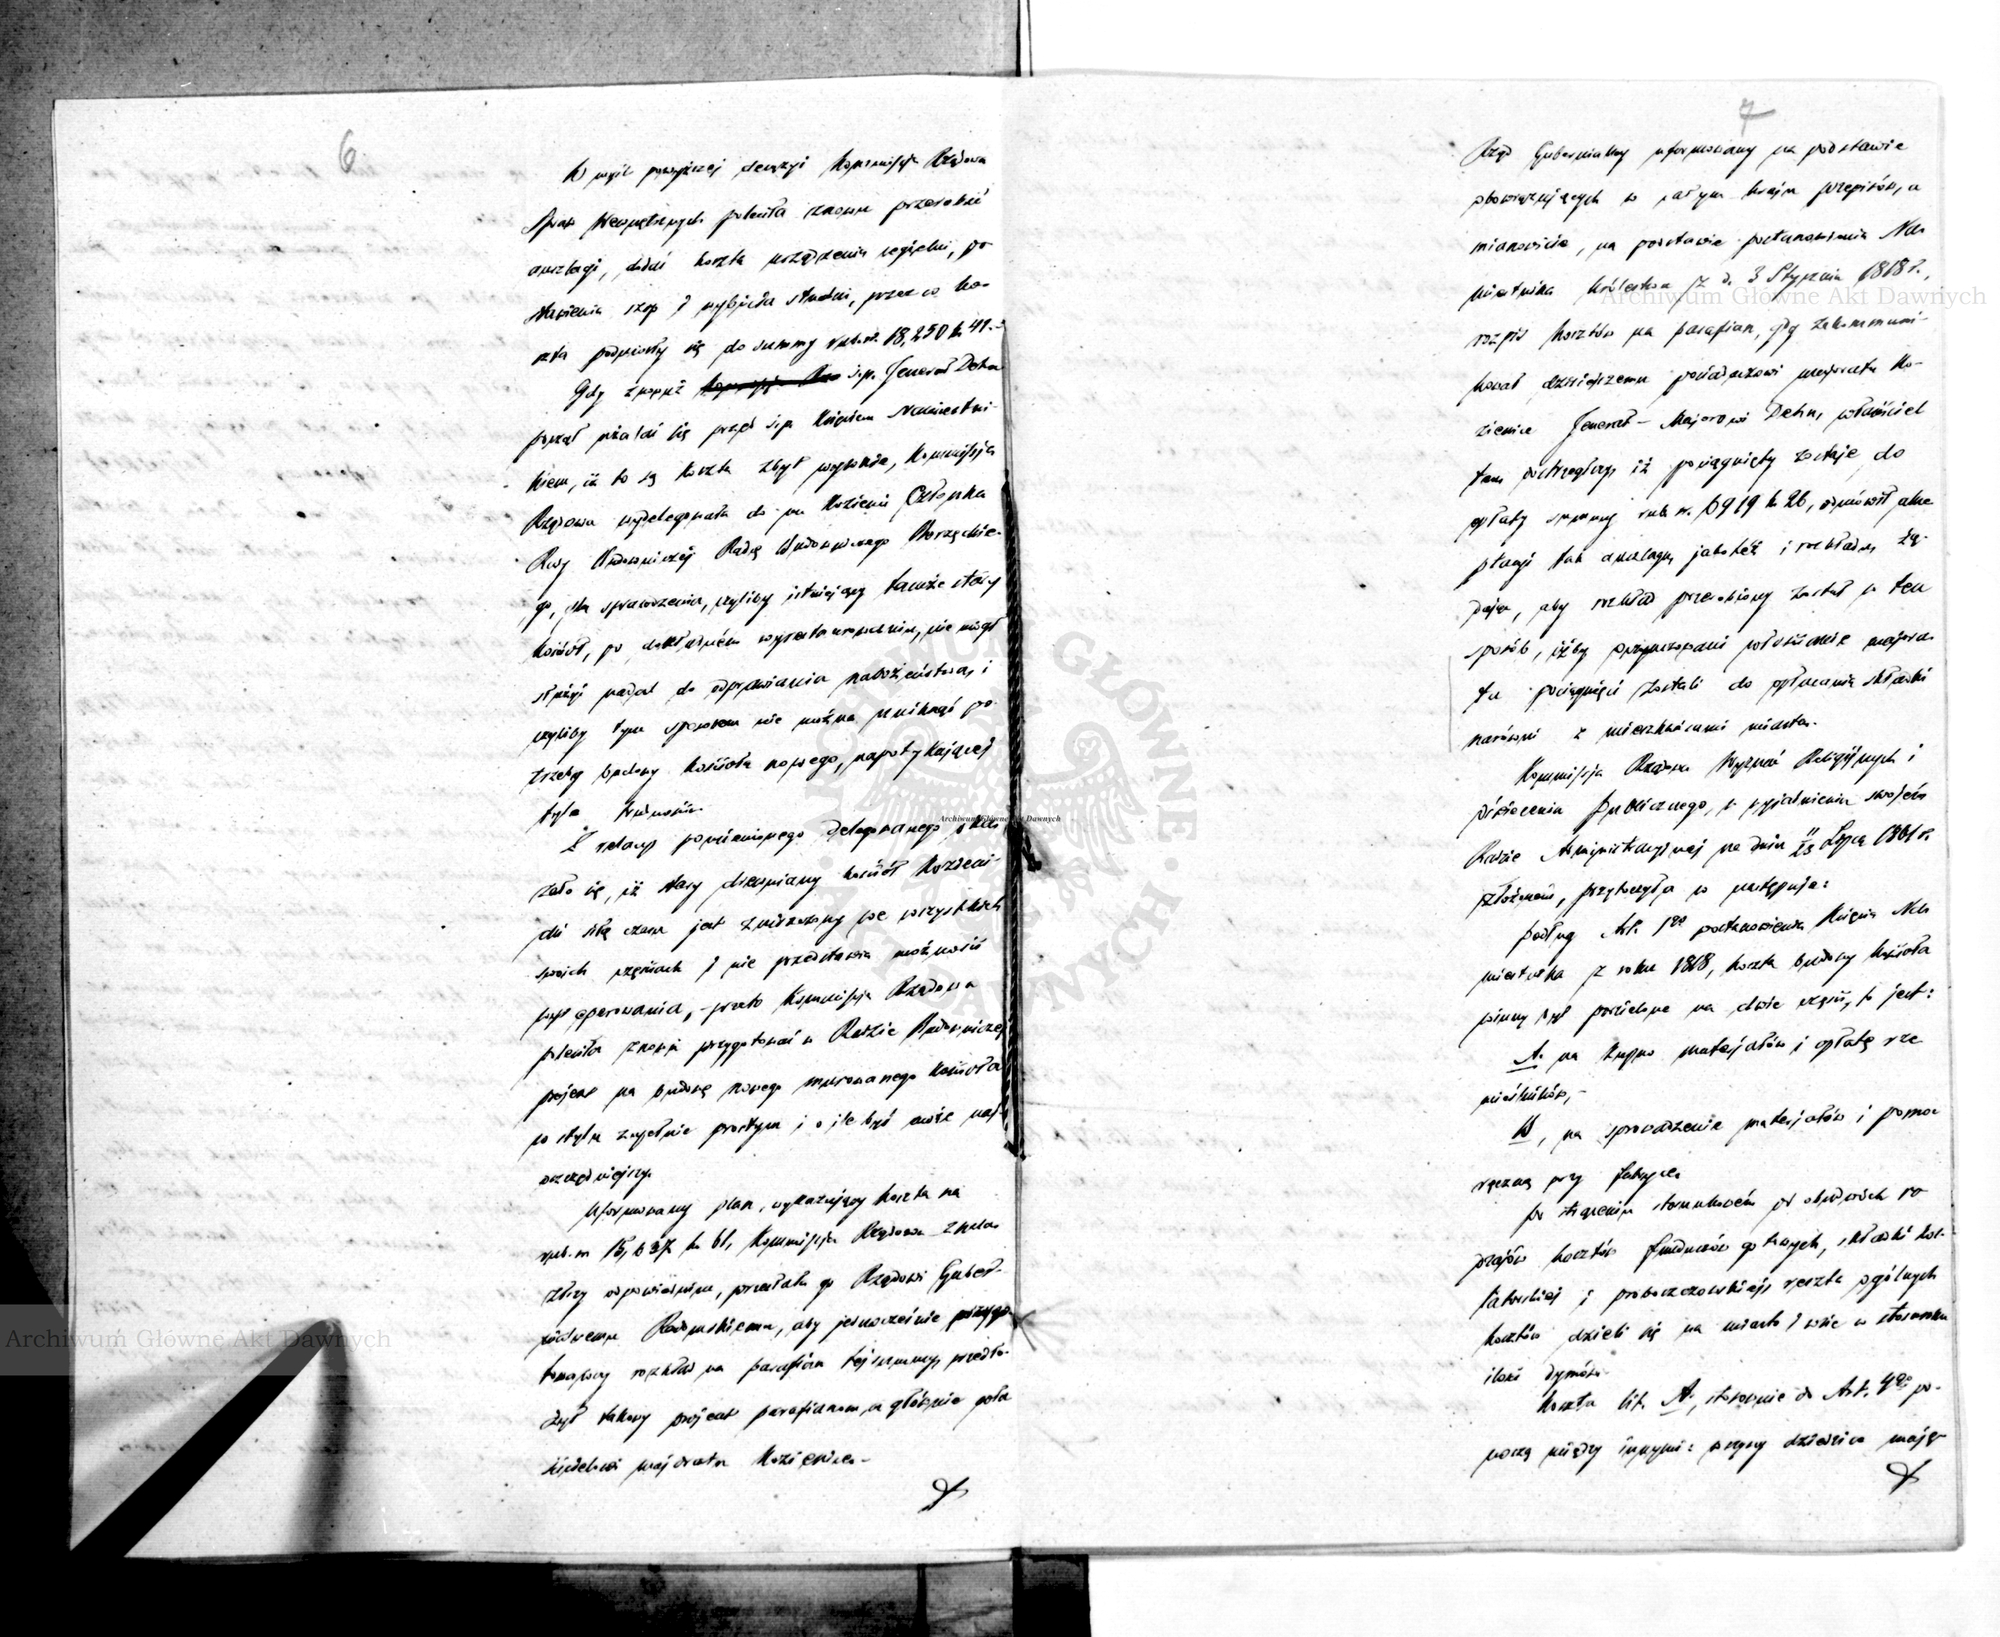 6
W myśl powyższej decyzyi Kommissja Rządowa
Spraw Wewnętrznych poleciła znowu przerobić
anszlagi, dodać koszta urządzenia cegielni, po
stawienia szop i wybicia studni, przez co ko-
szta podniosły się do summy rub. sr. 18,250 k. 41.-
Gdy znowuż ś.p. Jenerał Dehn
począł użalać się przed ś.p. Księciem Namiestni-
kiem, iż to są koszta zbyt wysokie, Kommissja
Rządowa wydelegowała do Kozienic Członka
Rady Budowniczej Radcę Budowniczego
go, dla sprawdzenia, czyliby istniejący tamże stary
kościół, po dokładném wyrestaurowaniu, nie mógł
służyć nadal do odprawiania nabożeństwa, i
czyliby tym sposobem nie można uniknąć po-
trzeby budowy kościoła nowego, napotykającej
tyle trudności.
Z relacyi pomienionego delegowanego oka
zało się, iż stary drewniany kościół Kozieni-
cki siłą czasu jest zniszczony we wszystkich
swoich częściach i nie przedstawia możności
wyreperowania, - przeto Kommissja Rządowa
poleciła znowu przygotować w Radzie Budowniczej
projekt na budowę nowego murowanego kościoła
w stylu zupełnie prostym i o ile być może naj-
oszczędniejszy.
Uformowany plan, wykazujący koszta na
rub. sr. 15,637 k. 61, Kommissja Rządowa znala
złszy odpowiednim, przesłała go Rządowi Guber-
nialnemu Radomskiemu, aby jednocześnie przygo
towawszy rozkład na parafian tej summy, przedło-
żył takowy projekt parafianom, a głównie posia
dicielowi majoratu Kozienice.-
7
Rząd Gubernialny uformowany na podstawie
obowiązujących w całym kraju przepisów, a
mianowicie, na podstawie postanowienia Na-
miestnika Królestwa z d. 3 Stycznia 1818 r.,
rozpis kosztów na parafian, gdy zakommuni-
kował dzisiejszemu posiadaczowi majoratu Ko-
zienice Jenerał-Majorowi Dehn, właściciel
ten dostrzegłszy iż pociągnięty zostaje do
opłaty summy rub. sr. 6919 k. 26, odmówił akce
ptacyi tak anszlagu, jakoteż i rozkładu, żą-
dając, aby rozkład przerobiony został w ten
sposób, iżby oczynszowani włościanie majora
tu pociągnięci zostali do opłacania składki
narówni z mieszkańcami miasta.
Kommissja Rządowa Wyznań Religijnych i
Oświecenia Publicznego, w wyjaśnieniu swojém
Radzie Administracyjnej na dniu 11/23 Lipca 1861 r.
złożoném, przytoczyła co następuje:
Podług Art. 1go postanowienia Księcia Na-
miestnika z roku 1818, koszta budowy kościoła
winny być podzielone na dwie części, to jest:
A. na kupno materjałów i opłatę rze
mieślników,-
B, na sprowadzenie materjałów i pomoc
ręczną przy fabryce.
Po strąceniu stosunkowém od obudwóch ro
dzajów kosztów funduszów gotowych, składki kol-
latorskiej i proboszczowskiej, reszta ogólnych
kosztów dzieli się na miasto i wsie w stosunku
ilości dymów.
Koszta lit. A, stosownie do Art. 4go po-
noszą między innymi: wszyscy dziedzice mają-
Archiwum Główne Akt Dawnych
Archiwum Główne Akt Dawnych
Archiwum Główne Akt Dawnych
ARCHIWUM GŁÓWNE AKT DAWNYCH